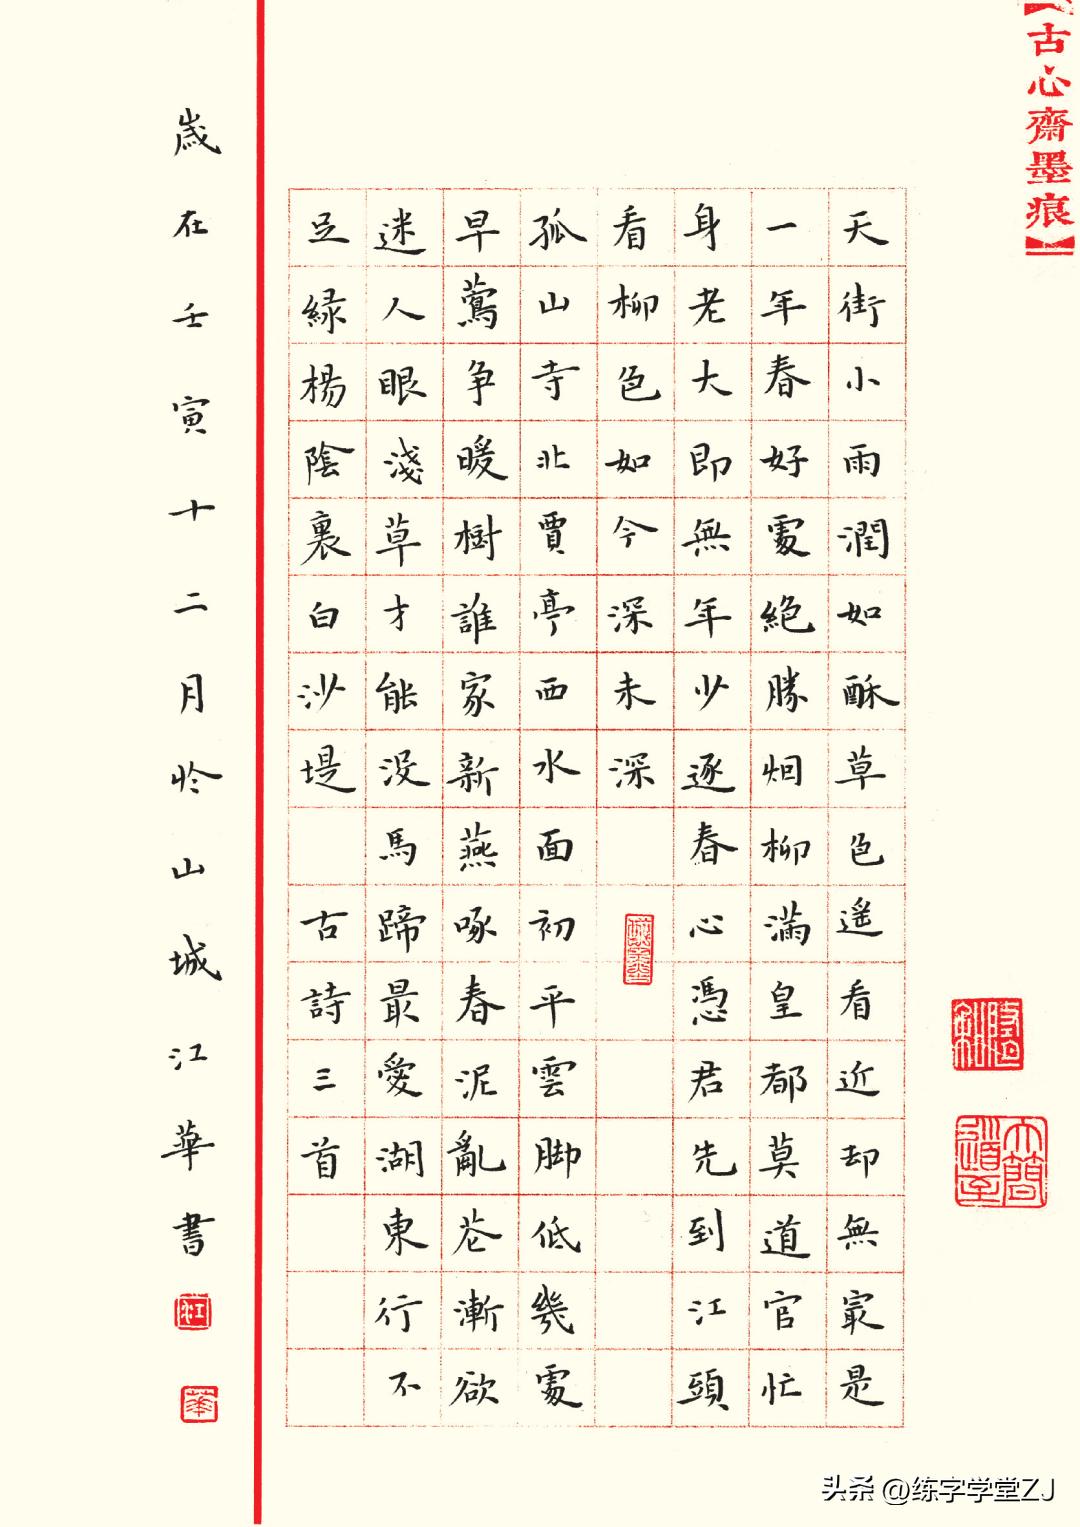 【古心齋墨痕】
天街小雨潤如酥草色遥看近却無冣是
一年春好處絶勝烟柳滿皇都莫道官忙
身老大即無年少逐春心憑君先到江頭
看柳色如今深未深
孤山寺北賈亭西水面初平雲脚低幾處
早鶯争暖樹誰家新燕啄春泥亂花漸欲
迷人眼淺草才能没馬蹄最愛湖東行不
足緑楊陰裏白沙堤 古詩三首
歲在壬寅十二月於山城江華書
江
華
大道至簡
头条 @练字学堂ZJ